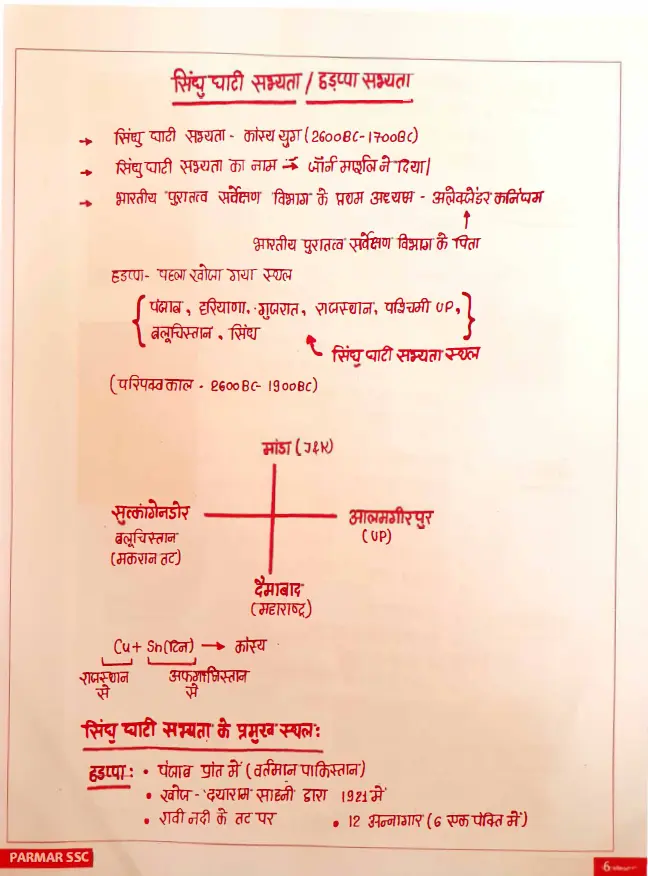 सिंधु घाटी सभ्यता / हड़प्पा सभ्यता
→ सिंधु घाटी सभ्यता - कांस्य युग (2600BC-1700BC)
→ सिंधु घाटी सभ्यता का नाम → जॉन मार्शल ने दिया|
→ भारतीय पुरातत्व सर्वेक्षण विभाग के प्रथम अध्यक्ष - अलेक्जेंडर कनिंघम
भारतीय पुरातत्व सर्वेक्षण विभाग के पिता
हडप्पा - पहला खोजा गया स्थल
{ पंजाब, हरियाणा, गुजरात, राजस्थान, पश्चिमी UP,
बलूचिस्तान, सिंध }
सिंधु घाटी सभ्यता स्थल
(परिपक्व काल - 2600BC- 1900BC)
मांडा (J&K)
सुत्कांगेनडोर आलमगीरपुर
बलूचिस्तान (UP)
(मकरान तट)
दैमाबाद
(महाराष्ट्र)
Cu + Sn(टिन) → कांस्य
राजस्थान अफगानिस्तान
से से
सिंधु घाटी सभ्यता के प्रमुख स्थल:
हडप्पा: • पंजाब प्रांत में (वर्तमान पाकिस्तान)
• खोज - दयाराम साहनी द्वारा 1921 में
• रावी नदी के तट पर • 12 अन्नागार (6 एक पंक्ति में)
PARMAR SSC
6